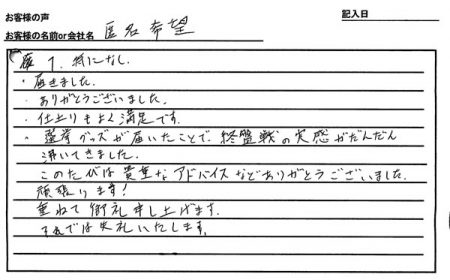 お客様の声
記入日
お客様の名前or会社名 匿名希望
1. 特になし.
・届きました.
・ありがとうございました.
・仕上りもよく満足です.
・選挙グッズが届いたことで、終盤戦の実感がだんだん
沸いてきました.
このたびは貴重なアドバイスなどありがとうございました.
頑張ります!
重ねて御礼申し上げます.
それでは失礼いたします.